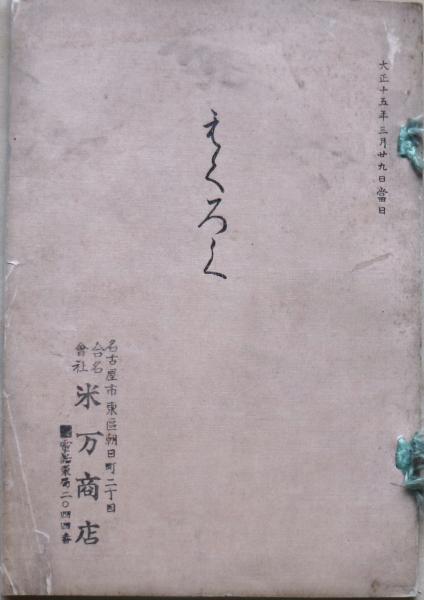 大正十五年三月廿九日當日
もくろく
名古屋市東區朝日町二丁目
合名會社
米万商店
電話東局二〇四四番